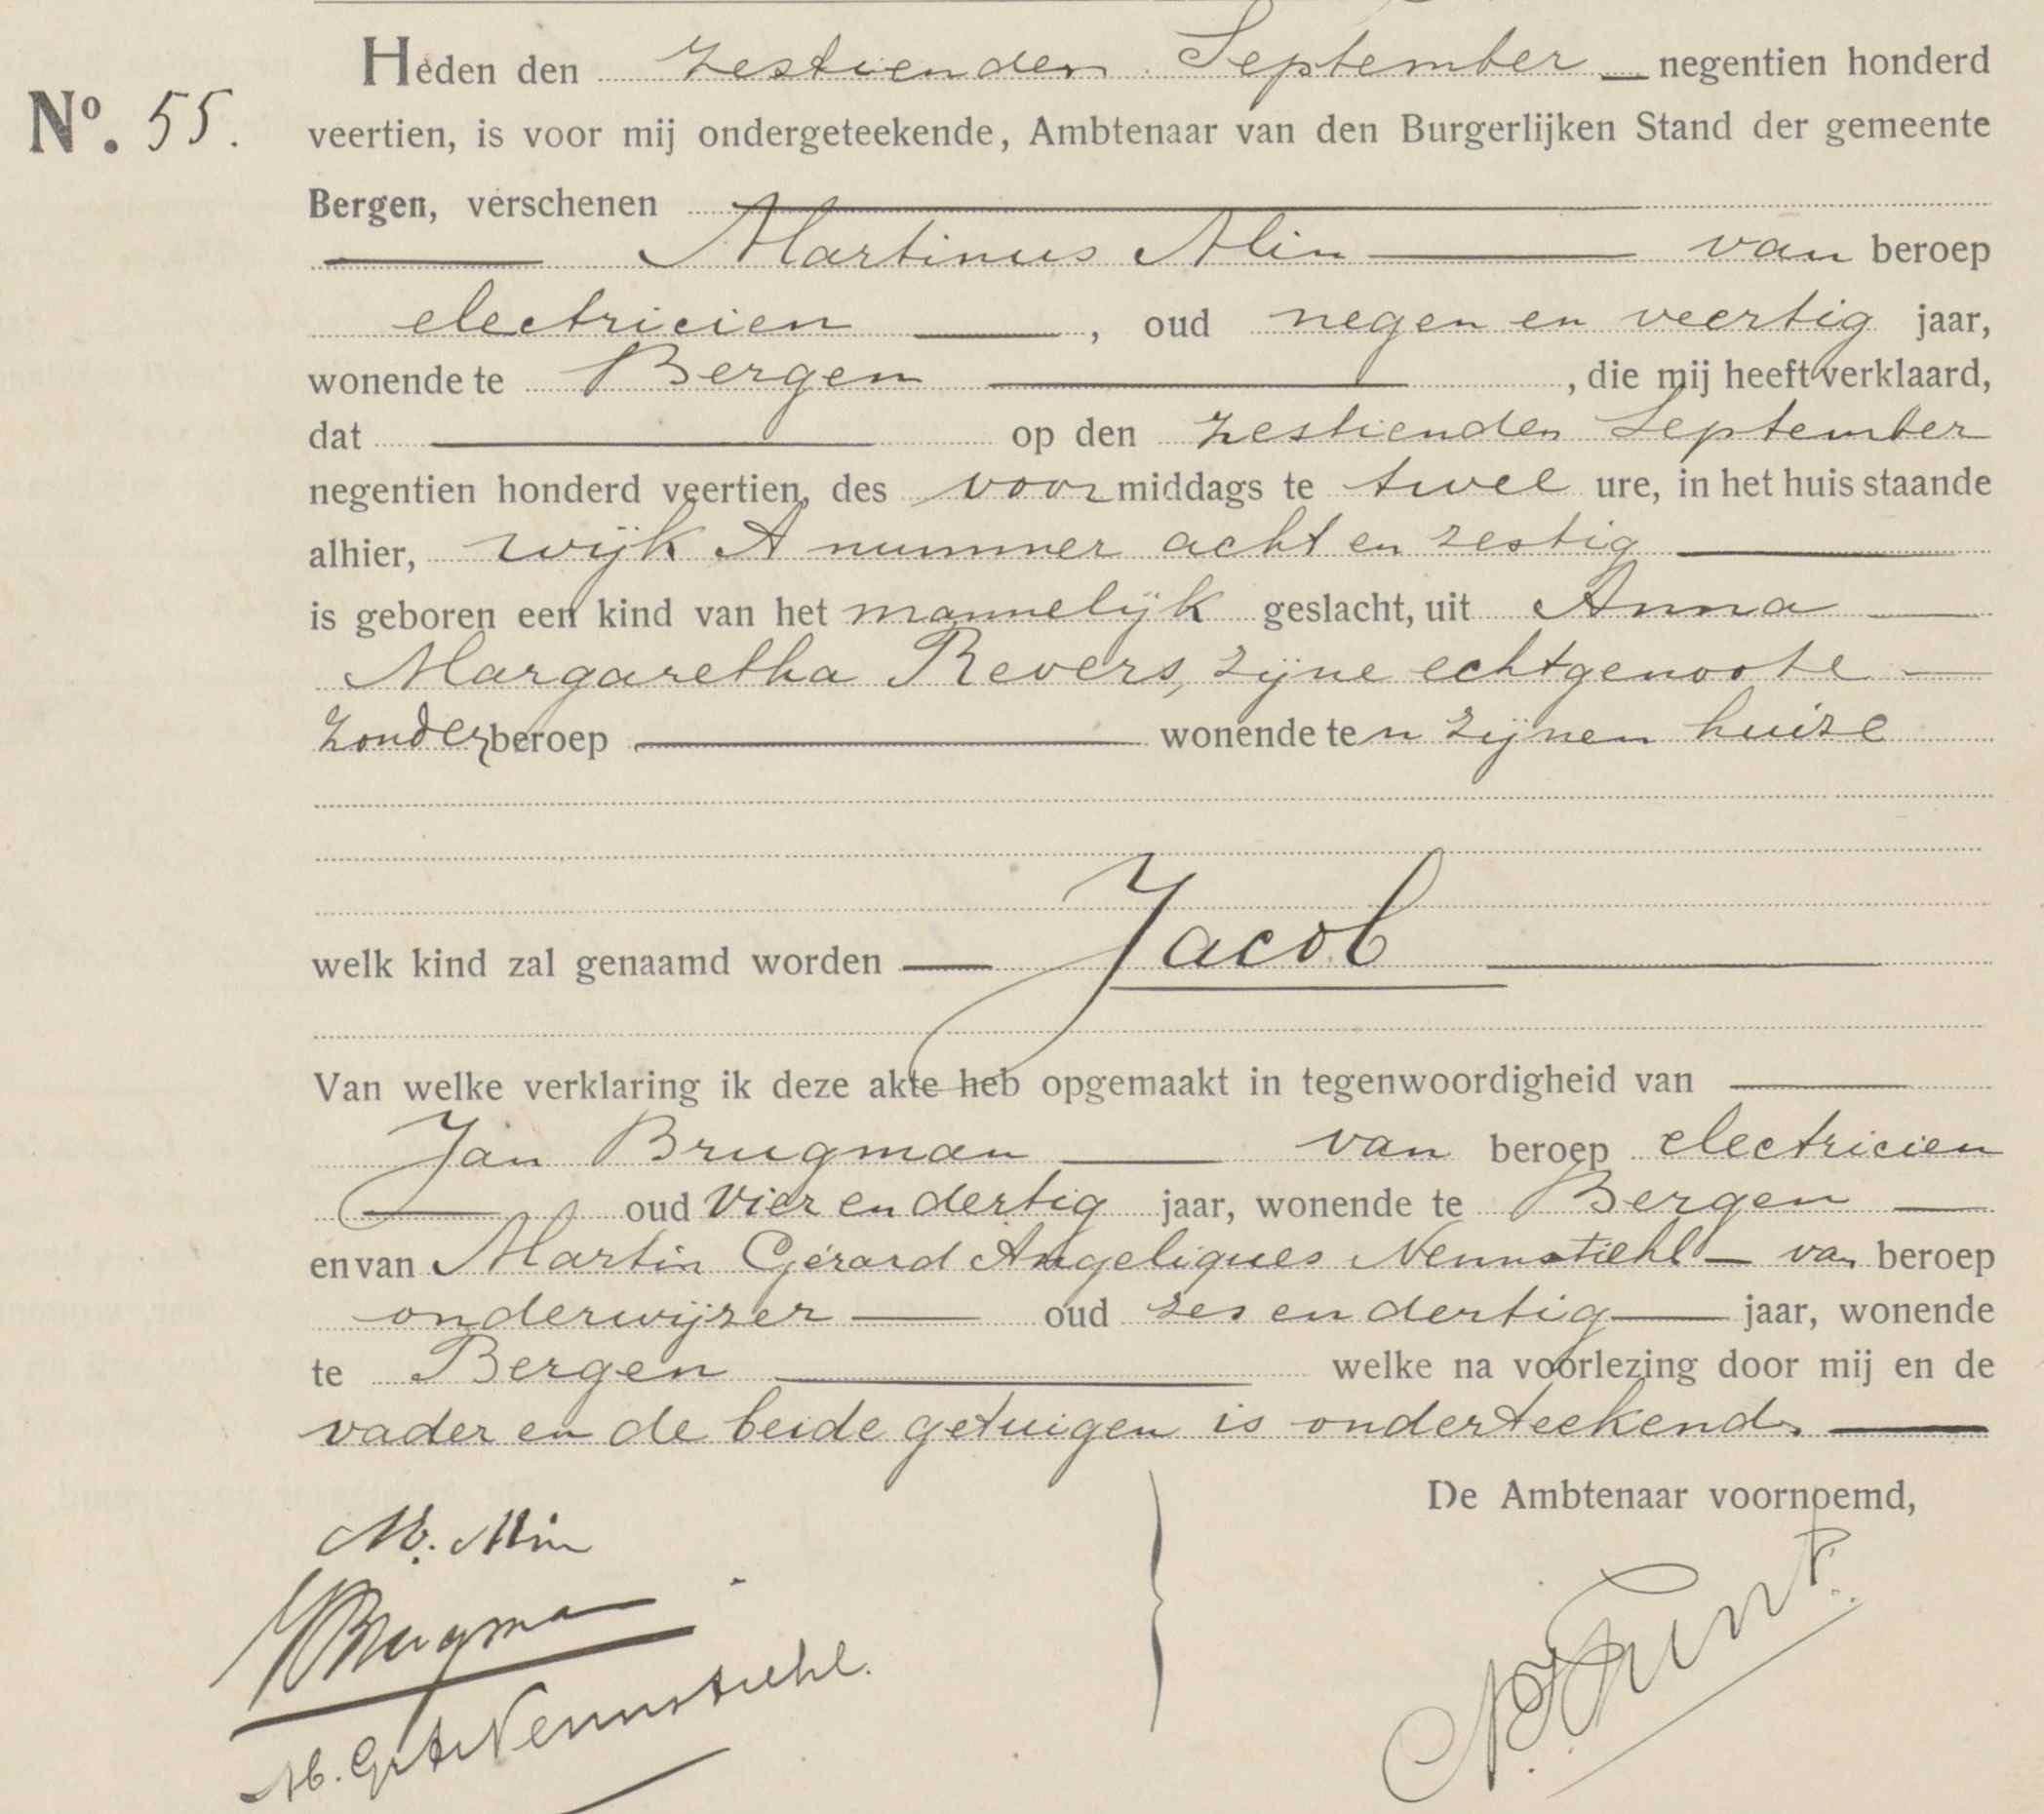 Heden den zestienden September negentien honderd
No. 55.
veertien, is voor mij ondergeteekende, Ambtenaar van den Burgerlijken Stand der gemeente
Bergen, verschenen
Martinus Min van beroep
electricien, oud negen en veertig jaar,
wonende te Bergen, die mij heeft verklaard,
dat op den zestienden September
negentien honderd veertien, des voormiddags te twee ure, in het huis staande
alhier, wijk A nummer acht en zestig
is geboren een kind van het mannelijk geslacht, uit Anna
Margaretha Revers, zijne echtgenoote
zonder beroep wonende ten zijnen huize
welk kind zal genaamd worden Jacob
Van welke verklaring ik deze akte heb opgemaakt in tegenwoordigheid van
Jan Brugman van beroep electricien
oud vier en dertig jaar, wonende te Bergen
en van Martin Gérard Angeliques Nennstiehl van beroep
onderwijzer oud zes en dertig jaar, wonende
te Bergen welke na voorlezing door mij en de
vader en de beide getuigen is onderteekend.
De Ambtenaar voornoemd,
M. Min
J Brugman
M. G. A. Nennstiehl.